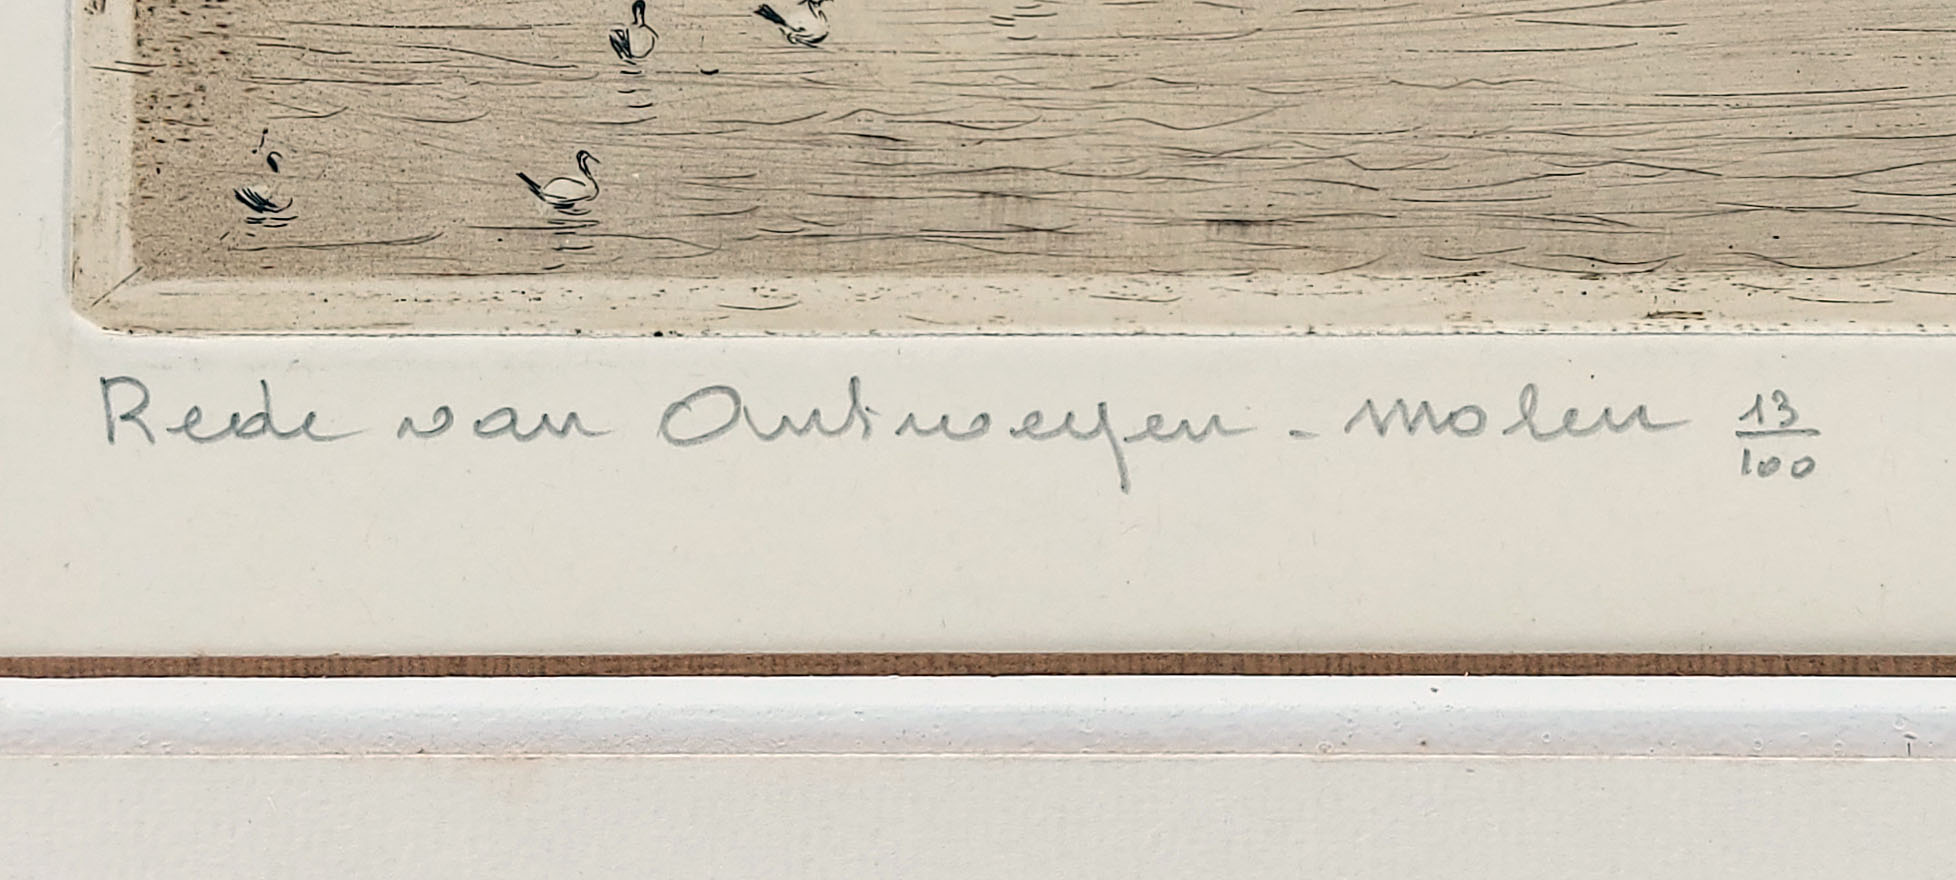 Rede van Antwerpen - Molen 13/100